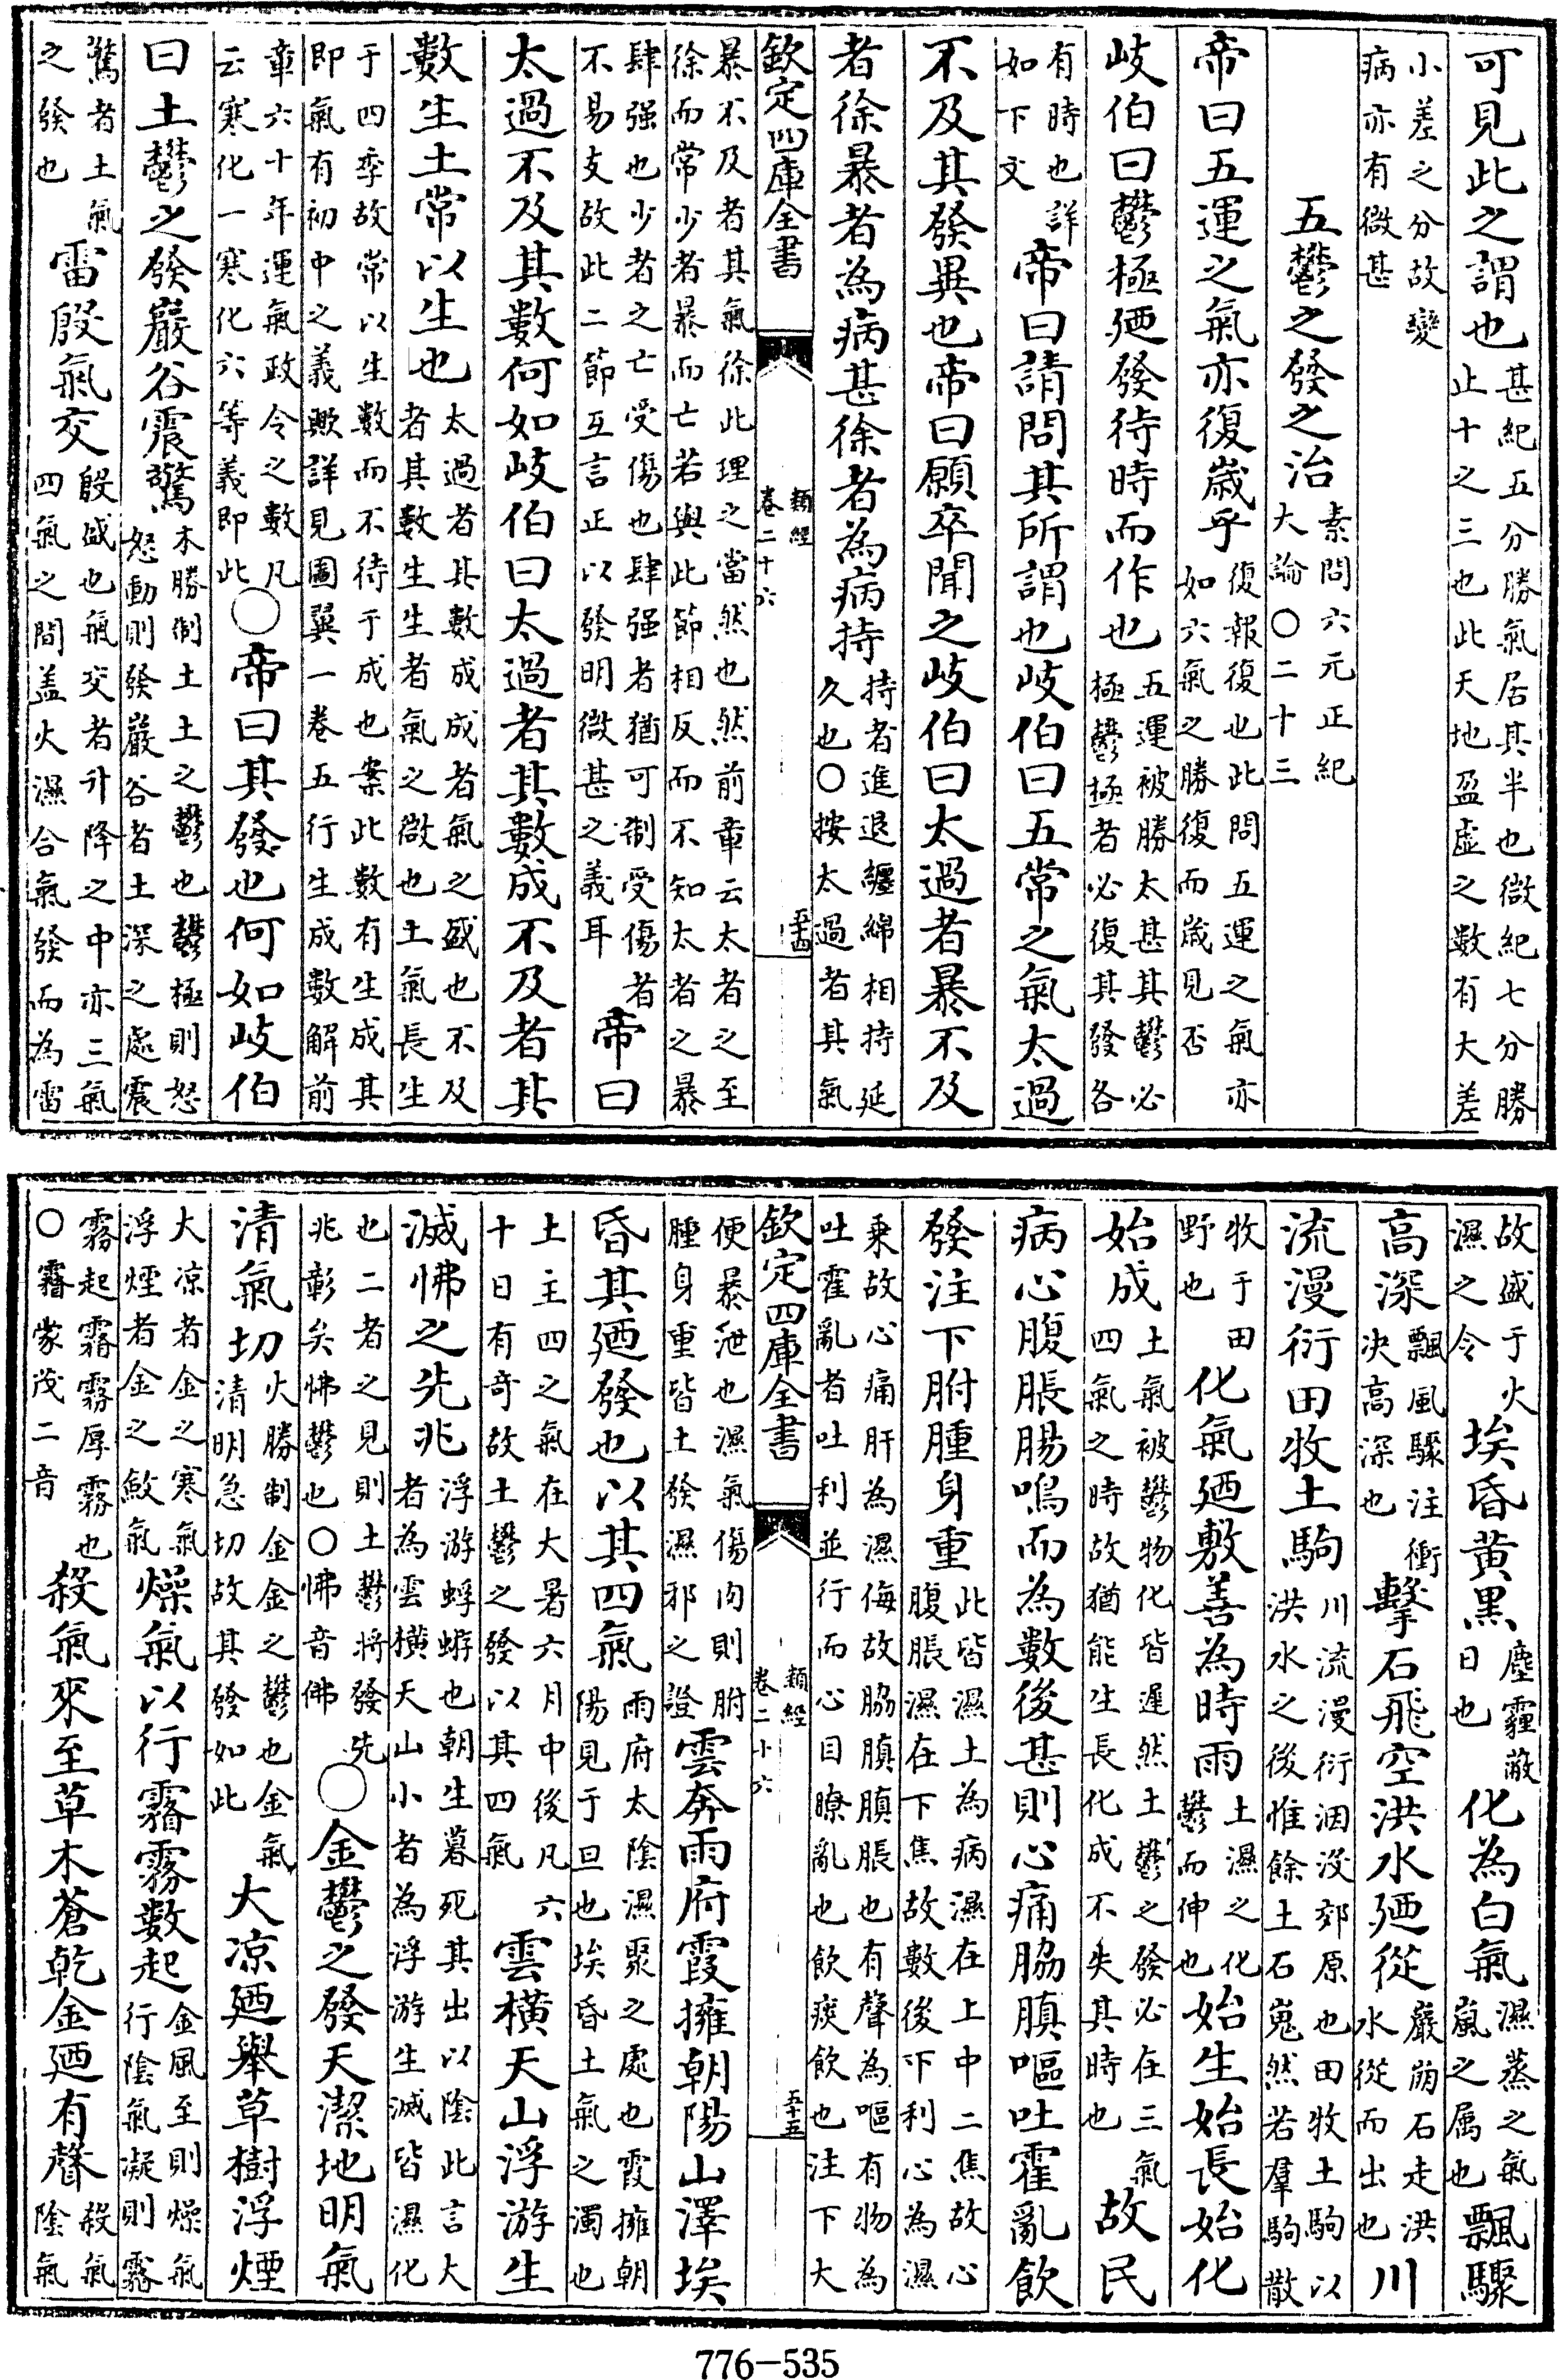 可見此之謂也甚紀五分勝氣居其半也微紀七分勝止十之三也此天地盈虛之数有大差
小差之分故變病亦有微甚
五鬱之發之治素問六元正紀大論○二十三
帝曰五運之氣亦復歲乎復報復也此問五運之氣亦如六氣之勝復而歲見否
岐伯曰鬱極廼發待時而作也五運被勝太甚其鬱必極鬱極者必復其發各
有時也詳如下文帝曰請問其所謂也岐伯曰五常之氣太過
不及其發異也帝曰願卒聞之岐伯曰太過者暴不及
者徐暴者為病甚徐者為病持持者進退纏綿相持延久也○按太過者其氣
欽定四庫全書 類經 卷二十六 五十四
暴不及者其氣徐此理之當然也然前章云太者之至徐而常少者暴而亡若與此節相反而不知太者之暴
肆强也少者之亡受傷也肆强者猶可制受傷者不易支故此二節互言正以發明微甚之義耳帝曰
太過不及其數何如岐伯曰太過者其數成不及者其
數生土常以生也太過者其數成成者氣之盛也不及者其數生生者氣之微也土氣長生
于四季故常以生數而不待于成也案此數有生成其即氣有初中之義歟詳見圖翼一卷五行生成數解前
章六十年運氣政令之數凡云寒化一寒化六等義即此○帝曰其發也何如岐伯
曰土鬱之發巖谷震驚木勝制土土之鬱也鬱極則怒怒動則發巖谷者土深之處震
驚者土氣之發也雷殷氣交殷盛也氣交者升降之中亦三氣四氣之間盖火濕合氣發而為雷
故盛于火濕之令埃昏黄黑塵霾蔽日也化為白氣濕蒸之氣嵐之属也飄驟
高深飄風驟注衝决高深也擊石飛空洪水廼從巖崩石走洪水從而出也川
流漫衍田牧土駒川流漫衍洇没郊原也田牧土駒以洪水之後惟餘土石嵬然若羣駒散
牧于田野也化氣廼敷善為時雨土濕之化鬱而伸也始生始長始化
始成土氣被鬱物化皆遲然土鬱之發必在三氣四氣之時故猶能生長化成不失其時也故民
病心腹脹腸鳴而為數後甚則心痛脇䐜嘔吐霍亂飲
發注下胕腫身重此皆濕土為病濕在上中二焦故心腹脹濕在下焦故數後下利心為濕
乗故心痛肝為濕侮故脇䐜䐜脹也有聲為嘔有物為吐霍亂者吐利並行而心目瞭亂也飲痰飲也注下大
欽定四庫全書 類經 卷二十六 五十五
便暴泄也濕氣傷肉則胕腫身重皆土發濕邪之證雲奔雨府霞擁朝陽山澤埃
昏其廼發也以其四氣雨府太陰濕聚之處也霞擁朝陽見于旦也埃昏土氣之濁也
土主四之氣在大暑六月中後凡六十日有奇故土鬱之發以其四氣雲横天山浮游生
滅怫之先兆浮游蜉蝣也朝生暮死其出以陰此言大者為雲横天山小者為浮游生滅皆濕化
也二者之見則土鬱將發先兆彰矣怫鬱也○怫音佛○金鬱之發天潔地明氣
清氣切火勝制金金之鬱也金氣清明急切故其發如此大凉廼舉草樹浮煙
大凉者金之寒氣浮煙者金之斂氣燥氣以行霿霧數起金風至則燥氣行陰氣凝則霧
霧起霿霧厚霧也○霿蒙茂二音殺氣來至草木蒼乾金廼有聲殺氣陰氣
776-535